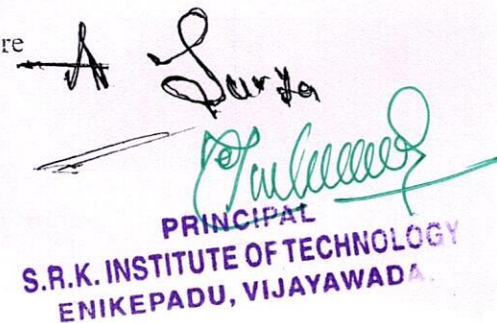 re
A Surya
PRINCIPAL
S.R.K. INSTITUTE OF TECHNOLOGY
ENIKEPADU, VIJAYAWADA.